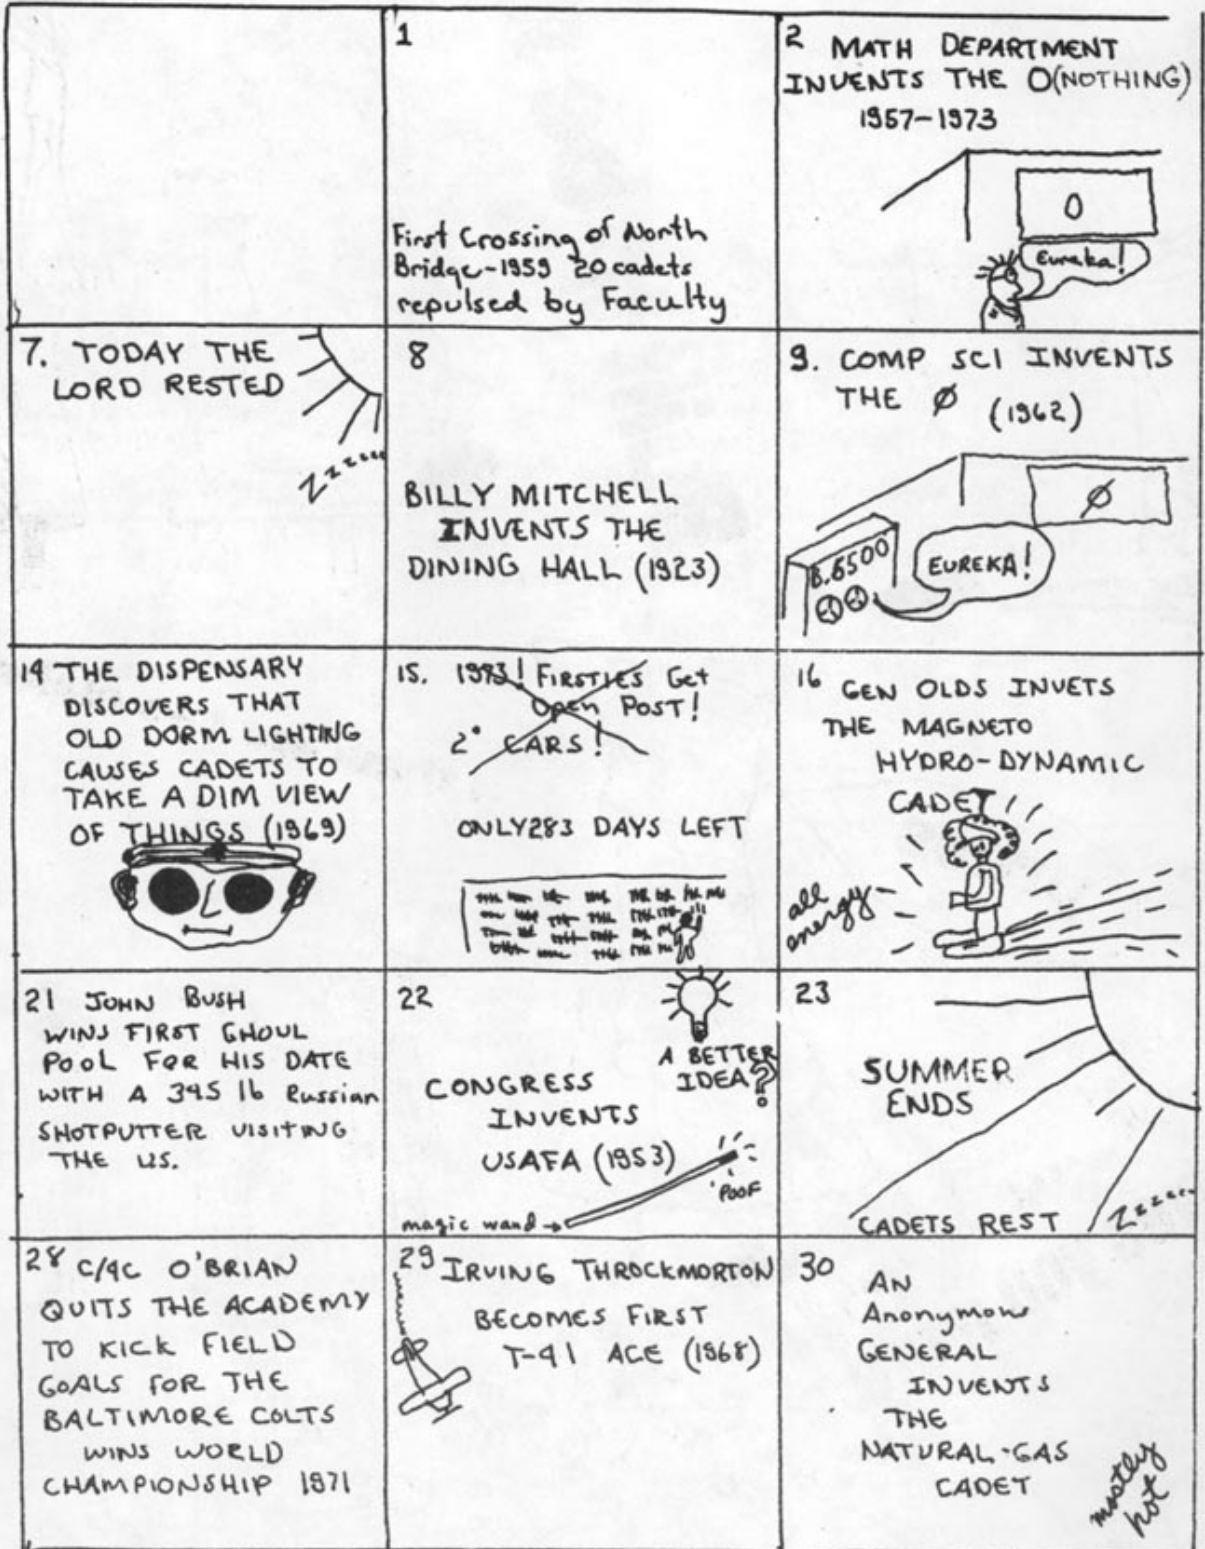 1
First Crossing of North
Bridge-1959 20 cadets
repulsed by Faculty
2 MATH DEPARTMENT
INVENTS THE O(NOTHING)
1957-1973
O
Eureka!
7. TODAY THE
LORD RESTED
Zzzzzz
8
BILLY MITCHELL
INVENTS THE
DINING HALL (1923)
9. COMP SCI INVENTS
THE Ø (1962)
Ø
B.6500
EUREKA!
14 THE DISPENSARY
DISCOVERS THAT
OLD DORM LIGHTING
CAUSES CADETS TO
TAKE A DIM VIEW
OF THINGS (1969)
15. 1973! FIRSTIES Get
Open POST!
2° CARS!
ONLY 283 DAYS LEFT
16 GEN OLDS INVETS
THE MAGNETO
HYDRO-DYNAMIC
CADET
all
energy
21 JOHN BUSH
WINS FIRST GHOUL
POOL FOR HIS DATE
WITH A 345 lb Russian
SHOTPUTTER VISITING
THE US.
22
A BETTER
IDEA?
CONGRESS
INVENTS
USAFA (1953)
'POOF
magic wand
23
SUMMER
ENDS
CADETS REST
Zzzzzz
28 C/4C O'BRIAN
QUITS THE ACADEMY
TO KICK FIELD
GOALS FOR THE
BALTIMORE COLTS
WINS WORLD
CHAMPIONSHIP 1971
29 IRVING THROCKMORTON
BECOMES FIRST
T-41 ACE (1968)
30
AN
Anonymous
GENERAL
INVENTS
THE
NATURAL-GAS
CADET
mostly
hot